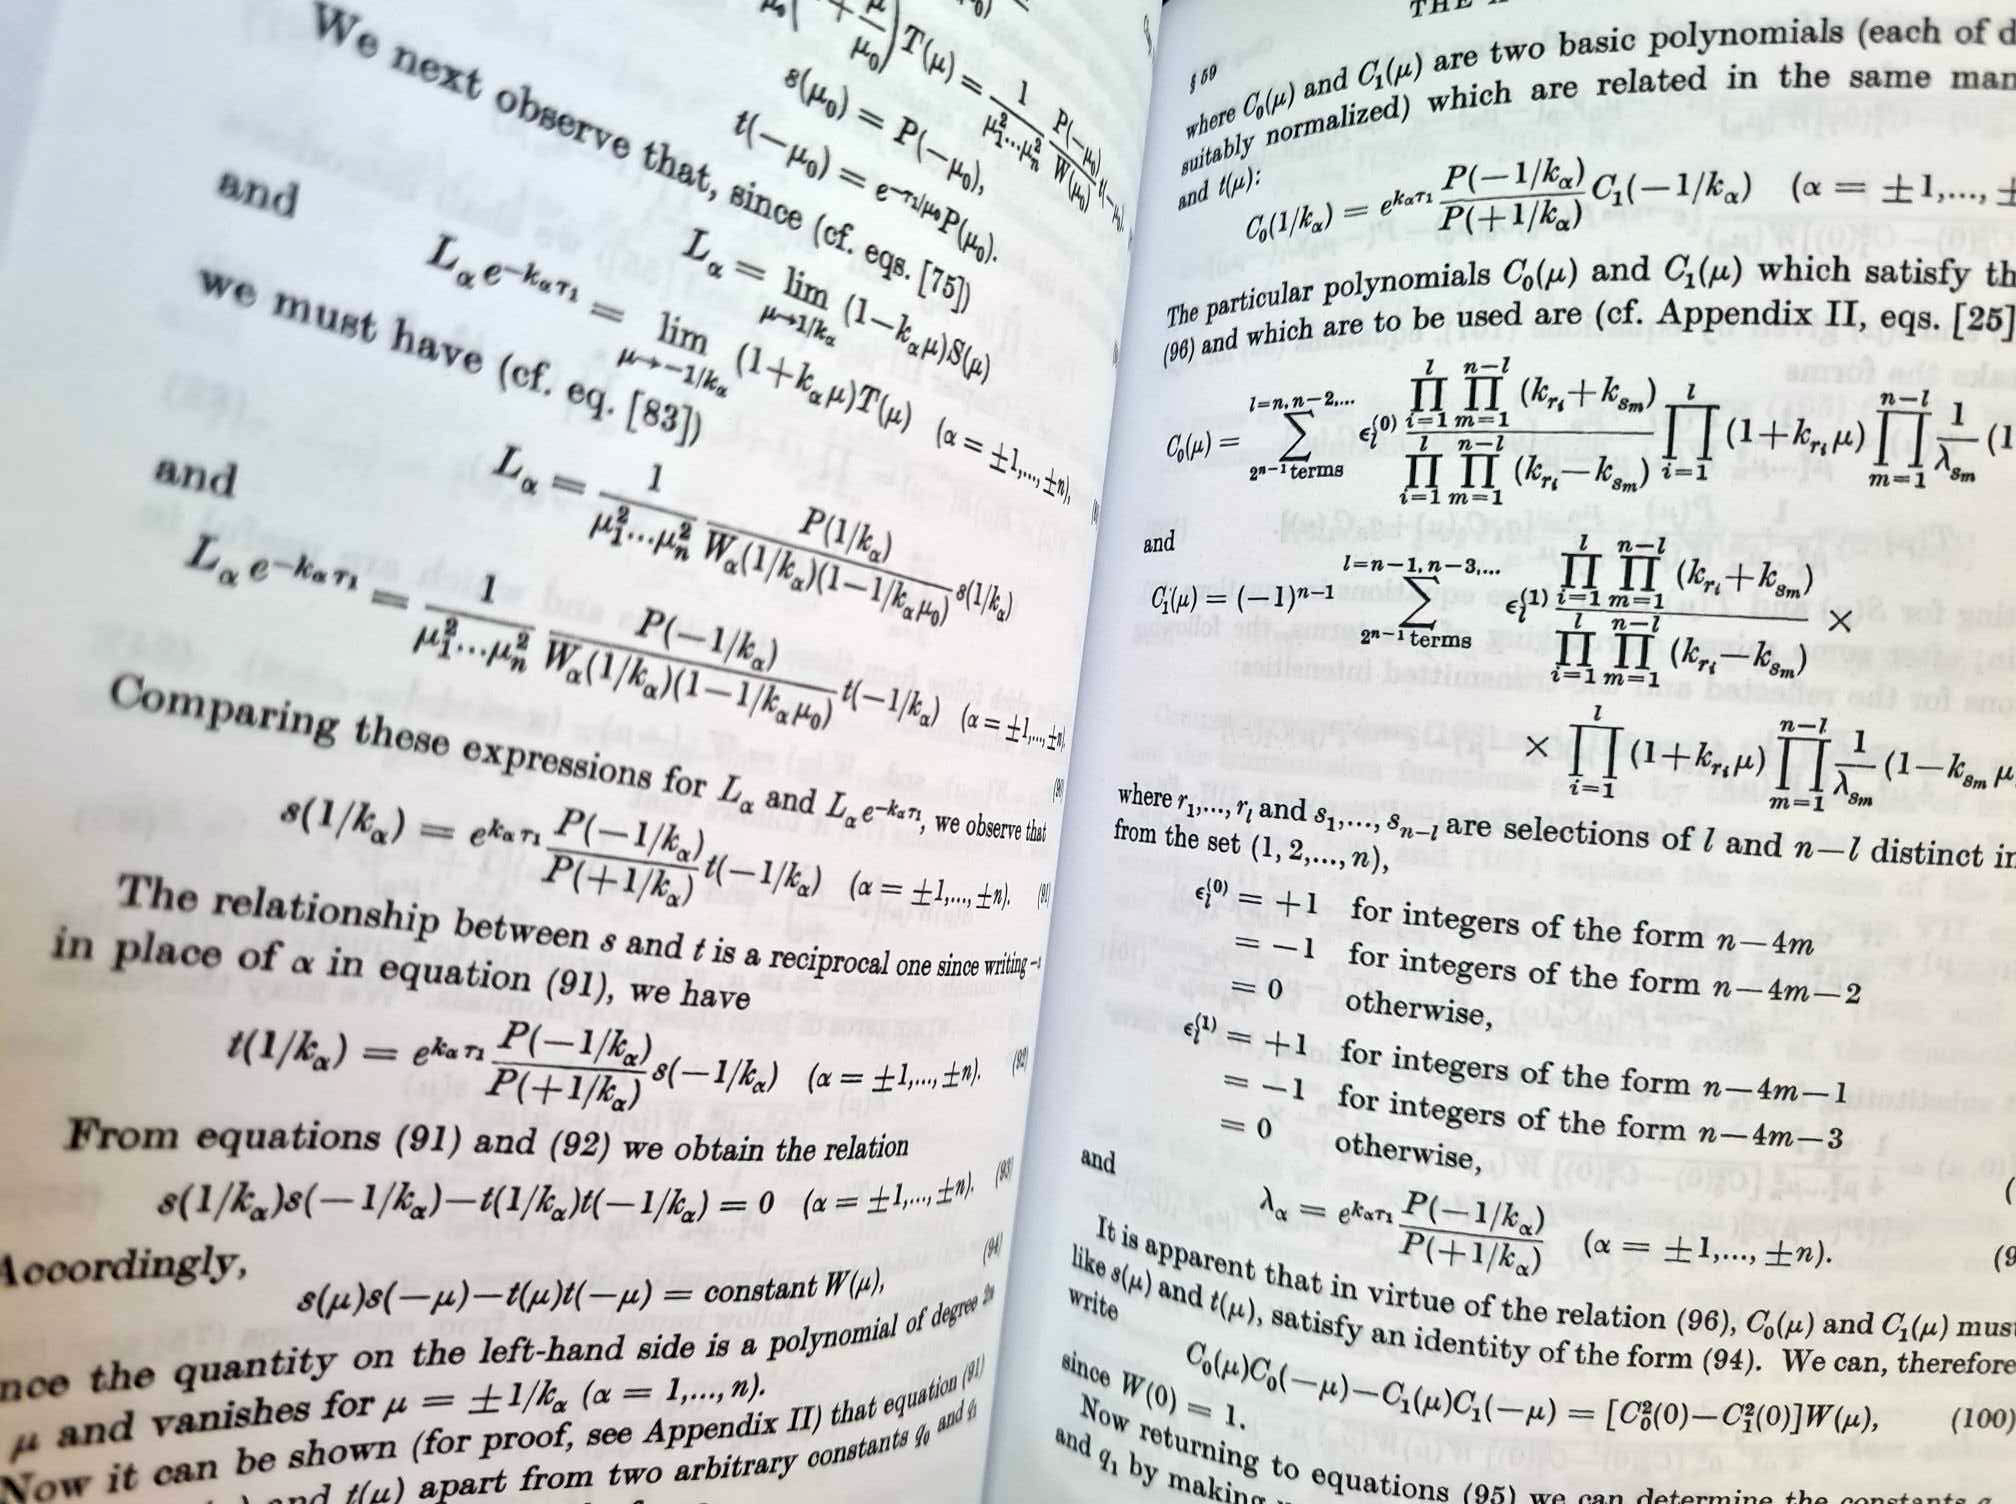 T(μ) = 1/(μ₁²...μₙ²) P(−μ₀)/W(μ₀)
s(μ₀) = P(−μ₀),
t(−μ₀) = e^{−τ₁/μ₀}P(μ₀).
We next observe that, since (cf. eqs. [75])
L_α = lim_{μ→1/k_α} (1−k_αμ)S(μ)
and
L_α e^{−k_ατ₁} = lim_{μ→−1/k_α} (1+k_αμ)T(μ) (α = ±1,..., ±n),
we must have (cf. eq. [83])
L_α = 1/(μ₁²...μₙ²) P(1/k_α)/(W_α(1/k_α)(1−1/k_αμ₀)) s(1/k_α)
and
L_α e^{−k_ατ₁} = 1/(μ₁²...μₙ²) P(−1/k_α)/(W_α(1/k_α)(1−1/k_αμ₀)) t(−1/k_α) (α = ±1,..., ±n).
Comparing these expressions for L_α and L_α e^{−k_ατ₁}, we observe that
s(1/k_α) = e^{k_ατ₁} P(−1/k_α)/P(+1/k_α) t(−1/k_α) (α = ±1,..., ±n). (91)
The relationship between s and t is a reciprocal one since writing
in place of α in equation (91), we have
t(1/k_α) = e^{k_ατ₁} P(−1/k_α)/P(+1/k_α) s(−1/k_α) (α = ±1,..., ±n). (92)
From equations (91) and (92) we obtain the relation
s(1/k_α)s(−1/k_α)−t(1/k_α)t(−1/k_α) = 0 (α = ±1,..., ±n). (93)
Accordingly,
s(μ)s(−μ)−t(μ)t(−μ) = constant W(μ), (94)
nce the quantity on the left-hand side is a polynomial of degree 2n
μ and vanishes for μ = ±1/k_α (α = 1,..., n).
Now it can be shown (for proof, see Appendix II) that equation (91)
and t(μ) apart from two arbitrary constants q₀ and q₁
§ 59
THE
where C₀(μ) and C₁(μ) are two basic polynomials (each of d
suitably normalized) which are related in the same man
and t(μ):
C₀(1/k_α) = e^{k_ατ₁} P(−1/k_α)/P(+1/k_α) C₁(−1/k_α) (α = ±1,..., ±
The particular polynomials C₀(μ) and C₁(μ) which satisfy th
(96) and which are to be used are (cf. Appendix II, eqs. [25]
C₀(μ) = ∑_{2^{n−1} terms}^{l=n, n−2,...} ε_l^{(0)} ∏_{i=1}^{l} ∏_{m=1}^{n−l} (k_{r_i}+k_{s_m}) / ∏_{i=1}^{l} ∏_{m=1}^{n−l} (k_{r_i}−k_{s_m}) ∏_{i=1}^{l} (1+k_{r_i}μ) ∏_{m=1}^{n−l} 1/λ_{s_m} (1
and
C₁(μ) = (−1)^{n−1} ∑_{2^{n−1} terms}^{l=n−1, n−3,...} ε_l^{(1)} ∏_{i=1}^{l} ∏_{m=1}^{n−l} (k_{r_i}+k_{s_m}) / ∏_{i=1}^{l} ∏_{m=1}^{n−l} (k_{r_i}−k_{s_m}) ×
× ∏_{i=1}^{l} (1+k_{r_i}μ) ∏_{m=1}^{n−l} 1/λ_{s_m} (1−k_{s_m}μ
where r₁,..., r_l and s₁,..., s_{n−l} are selections of l and n−l distinct in
from the set (1, 2,..., n),
ε_l^{(0)} = +1 for integers of the form n−4m
= −1 for integers of the form n−4m−2
= 0 otherwise,
ε_l^{(1)} = +1 for integers of the form n−4m−1
= −1 for integers of the form n−4m−3
= 0 otherwise,
and
λ_α = e^{k_ατ₁} P(−1/k_α)/P(+1/k_α) (α = ±1,..., ±n). (9
It is apparent that in virtue of the relation (96), C₀(μ) and C₁(μ) must
like s(μ) and t(μ), satisfy an identity of the form (94). We can, therefore
write
C₀(μ)C₀(−μ)−C₁(μ)C₁(−μ) = [C₀²(0)−C₁²(0)]W(μ), (100)
since W(0) = 1.
Now returning to equations (95) we can determine the constants
and q₁ by making